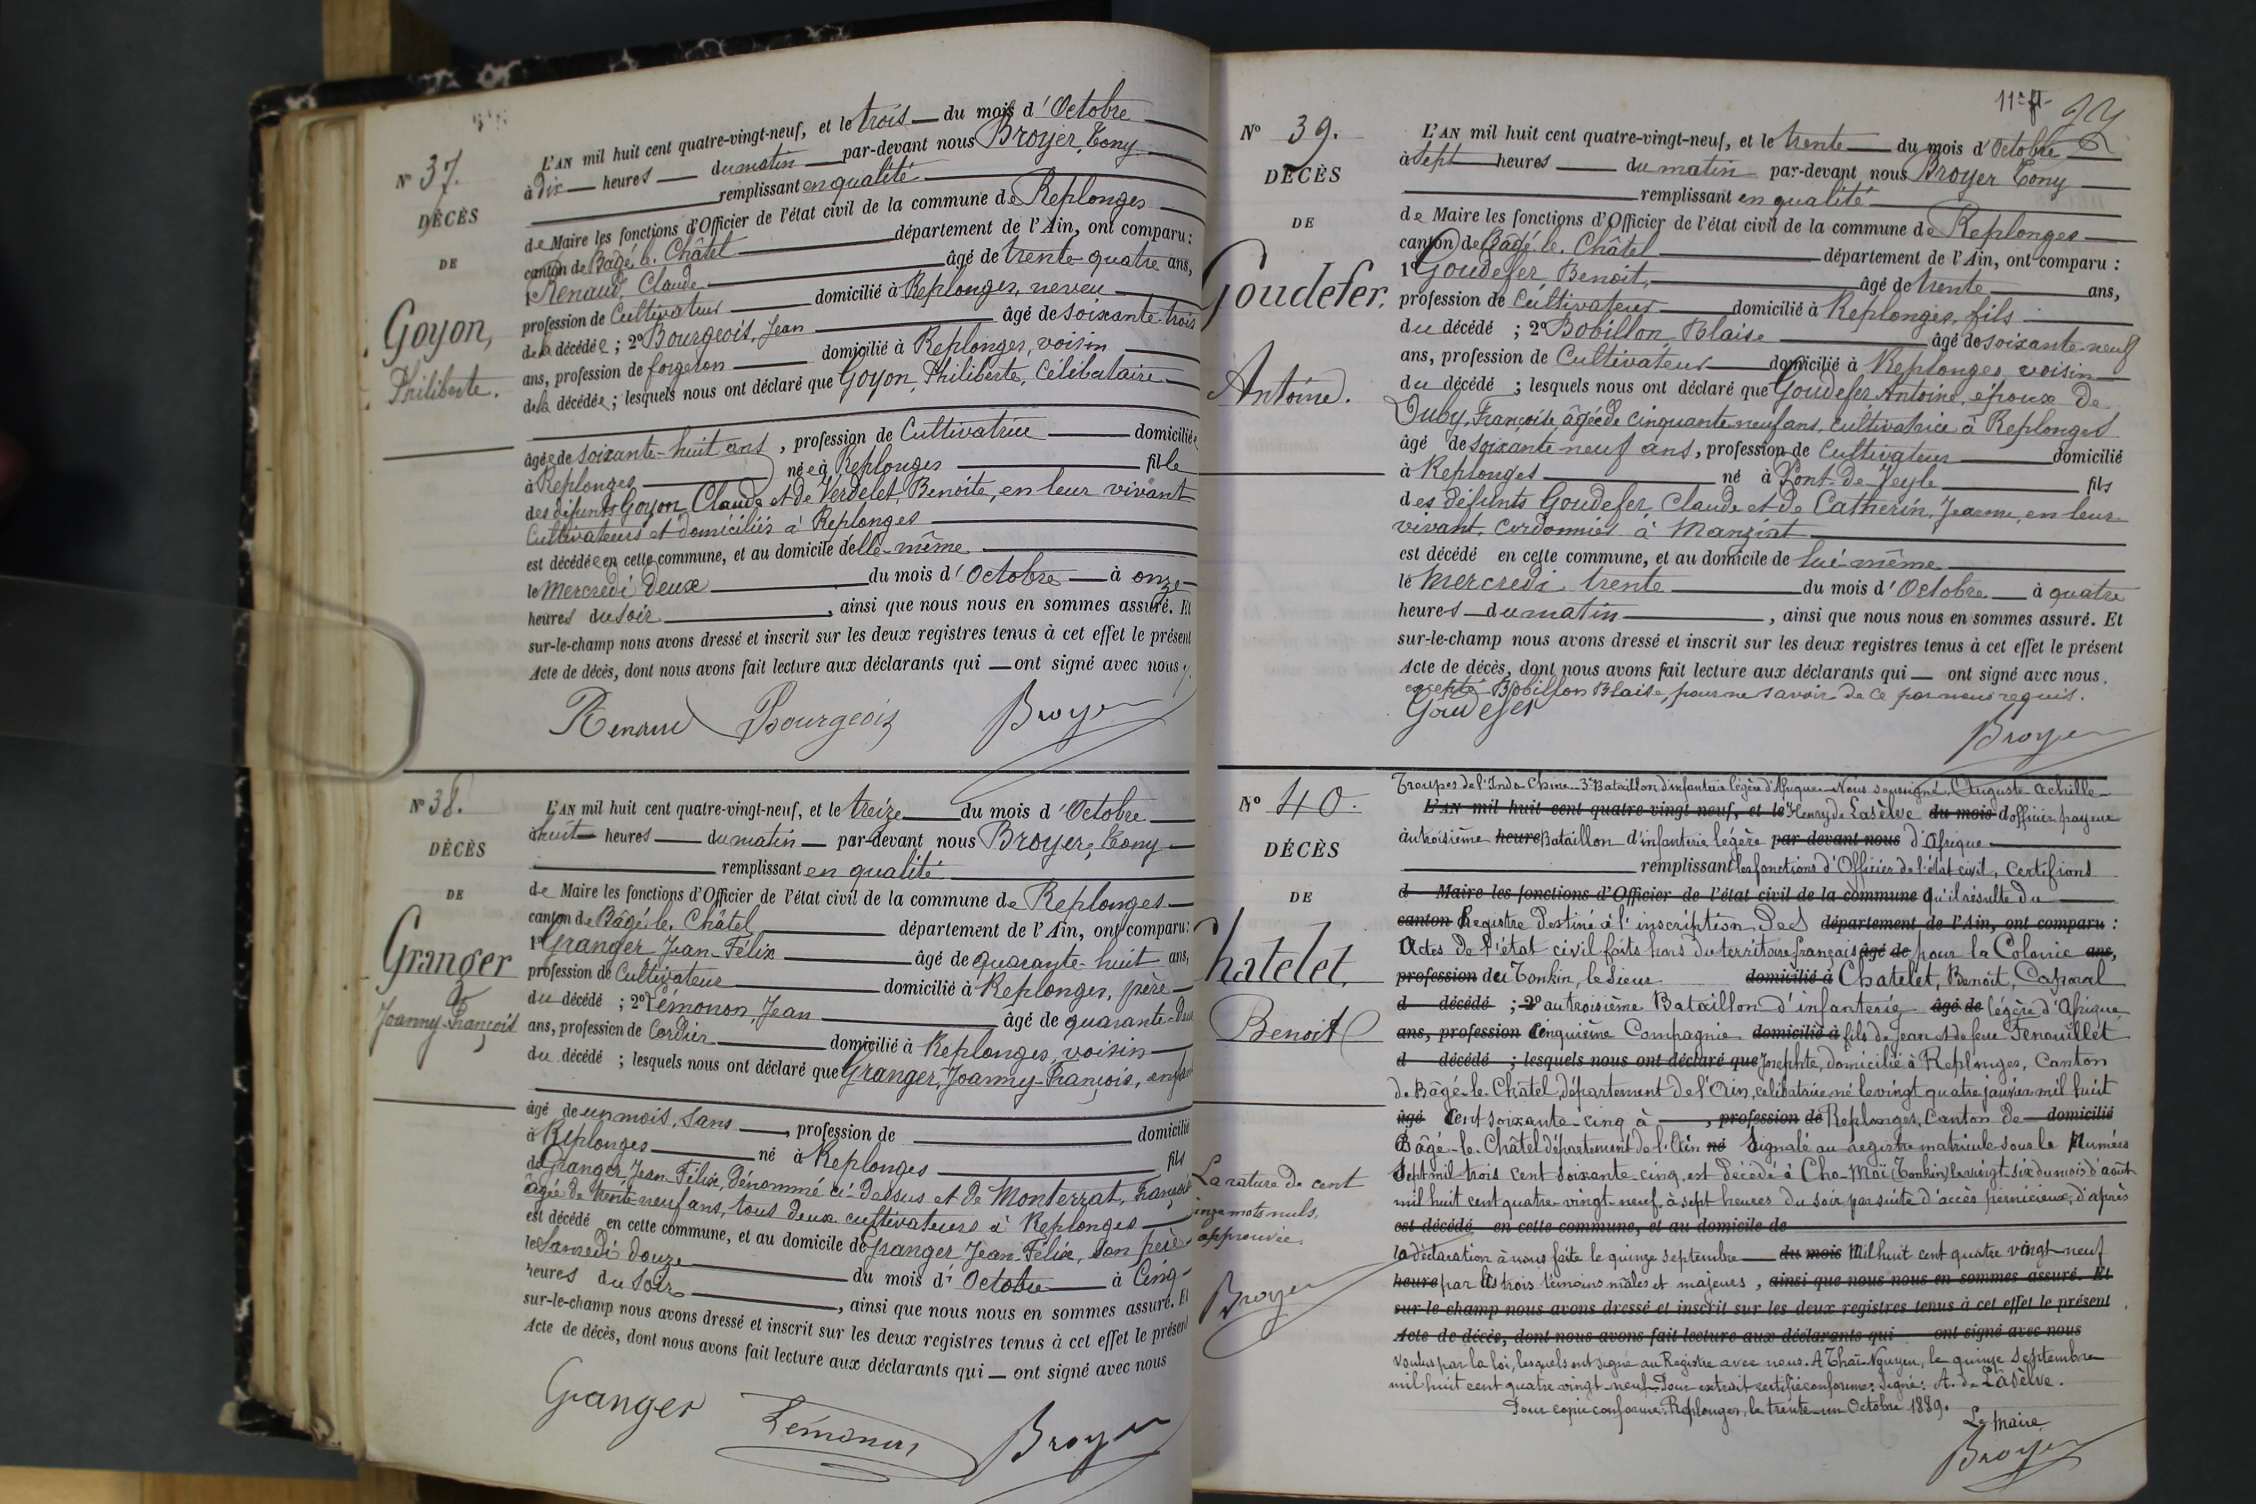 N° 37.
DÉCÈS
DE
Goyon,
Philiberte.
L'AN mil huit cent quatre-vingt-neuf, et le trois du mois d'Octobre
à dix heures du matin par-devant nous Broyer, Tony
remplissant en qualité
de Maire les fonctions d'Officier de l'état civil de la commune de Replonges
canton de Bâgé-le-Châtel département de l'Ain, ont comparu :
1° Renaud, Claude âgé de trente-quatre ans,
profession de Cultivateur domicilié à Replonges, neveu
de la décédée ; 2° Bourgeois, Jean âgé de soixante-trois
ans, profession de forgeron domicilié à Replonges, voisin
de la décédée ; lesquels nous ont déclaré que Goyon, Philiberte, célibataire
âgée de soixante-huit ans, profession de Cultivatrice domiciliée
à Replonges née à Replonges fille
des défunts Goyon, Claude et de Verdelet, Benoîte, en leur vivant
Cultivateurs et domiciliés à Replonges
est décédée en cette commune, et au domicile d'elle-même
le Mercredi deux du mois d'Octobre à onze
heures du soir, ainsi que nous nous en sommes assuré. Et
sur-le-champ nous avons dressé et inscrit sur les deux registres tenus à cet effet le présent
Acte de décès, dont nous avons fait lecture aux déclarants qui ont signé avec nous.
Renaud Bourgeois Broyer
N° 38.
DÉCÈS
DE
Granger
Joanny-François
L'AN mil huit cent quatre-vingt-neuf, et le treize du mois d'Octobre
à huit heures du matin par-devant nous Broyer, Tony
remplissant en qualité
de Maire les fonctions d'Officier de l'état civil de la commune de Replonges
canton de Bâgé-le-Châtel département de l'Ain, ont comparu :
1° Granger, Jean-Félix âgé de quarante-huit ans,
profession de Cultivateur domicilié à Replonges, père
du décédé ; 2° Lémonon, Jean âgé de quarante-deux
ans, profession de Cordier domicilié à Replonges, voisin
du décédé ; lesquels nous ont déclaré que Granger, Joanny-François, enfant
âgé de un mois, sans, profession de domicilié
à Replonges né à Replonges fils
de Granger, Jean-Félix, dénommé ci-dessus et de Monterrat, Françoise
âgée de trente-neuf ans, tous deux cultivateurs à Replonges
est décédé en cette commune, et au domicile de Granger Jean-Félix, son père
le Samedi douze du mois d'Octobre à Cinq
heures du Soir, ainsi que nous nous en sommes assuré. Et
sur-le-champ nous avons dressé et inscrit sur les deux registres tenus à cet effet le présent
Acte de décès, dont nous avons fait lecture aux déclarants qui ont signé avec nous
Granger Lémonon Broyer
N° 39.
DÉCÈS
DE
Goudefer,
Antoine.
L'AN mil huit cent quatre-vingt-neuf, et le trente du mois d'Octobre
à sept heures du matin par-devant nous Broyer Tony
remplissant en qualité
de Maire les fonctions d'Officier de l'état civil de la commune de Replonges
canton de Bâgé-le-Châtel département de l'Ain, ont comparu :
1° Goudefer, Benoit, âgé de trente ans,
profession de Cultivateur domicilié à Replonges, fils
du décédé ; 2° Bobillon, Blaise âgé de soixante-neuf
ans, profession de Cultivateur domicilié à Replonges, voisin
du décédé ; lesquels nous ont déclaré que Goudefer Antoine, époux de
Duby, Françoise âgée de cinquante neuf ans, cultivatrice à Replonges
âgé de soixante neuf ans, profession de Cultivateur domicilié
à Replonges né à Pont-de-Veyle fils
des défunts Goudefer, Claude et de Catherin, Jeanne, en leur
vivant, Cordonniers à Manziat
est décédé en cette commune, et au domicile de lui-même
le Mercredi trente du mois d'Octobre à quatre
heures du matin, ainsi que nous nous en sommes assuré. Et
sur-le-champ nous avons dressé et inscrit sur les deux registres tenus à cet effet le présent
Acte de décès, dont nous avons fait lecture aux déclarants qui ont signé avec nous,
excepté Bobillon Blaise, pour ne savoir de ce par nous requis.
Goudefer
Broyer
N° 40.
DÉCÈS
DE
Chatelet,
Benoit
Troupes de l'Indo-Chine 3e Bataillon d'infanterie légère d'Afrique Nous soussigné, Auguste Achille
L'AN mil huit cent quatre-vingt-neuf, et le Henry de Lasèlve du mois d'officier payeur
au troisième heure Bataillon d'infanterie légère par-devant nous d'Afrique
remplissant les fonctions d'Officier de l'état civil, Certifions
d Maire les fonctions d'Officier de l'état civil de la commune qu'il résulte du
canton Registre destiné à l'inscription des département de l'Ain, ont comparu :
Actes de l'état civil faits hors du territoire français âgé de pour la Colonie ans,
profession de du Tonkin, le sieur domicilié à Chatelet, Benoît, Caporal
d décédé ; 2° au troisième Bataillon d'infanterie âgé de légère d'Afrique
ans, profession Cinquième Compagnie domicilié à fils de Jean et de feue Fenouillet
d décédé ; lesquels nous ont déclaré que Josephte, domicilié à Replonges, Canton
de Bâgé-le-Châtel, département de l'Ain, célibataire né le vingt quatre janvier mil huit
âgé Cent soixante-cinq à, profession de Replonges, Canton de domicilié
Bâgé-le-Châtel département de l'Ain né Signalé au registre matricule sous le Numéro
Sept mil trois cent soixante-cinq, est décédé à Cho-Maï (Tonkin) le vingt-six du mois d'août
mil huit cent quatre-vingt-neuf à sept heures du soir par suite d'accès pernicieux, d'après
est décédé en cette commune, et au domicile de
la déclaration à nous faite le quinze septembre du mois Mil huit cent quatre vingt-neuf
heure par les trois témoins mâles et majeurs, ainsi que nous nous en sommes assuré. Et
sur-le-champ nous avons dressé et inscrit sur les deux registres tenus à cet effet le présent
Acte de décès, dont nous avons fait lecture aux déclarants qui ont signé avec nous
voulus par la loi, lesquels ont signé au Registre avec nous. A Thaï-Nguyen, le quinze Septembre
mil huit cent quatre vingt-neuf. Pour extrait certifié conforme : Signé : A. de Lasèlve.
Pour copie conforme : Replonges, le trente-un Octobre 1889.
Le Maire
Broyer
La rature de cent
mots nuls,
approuvée.
Broyer